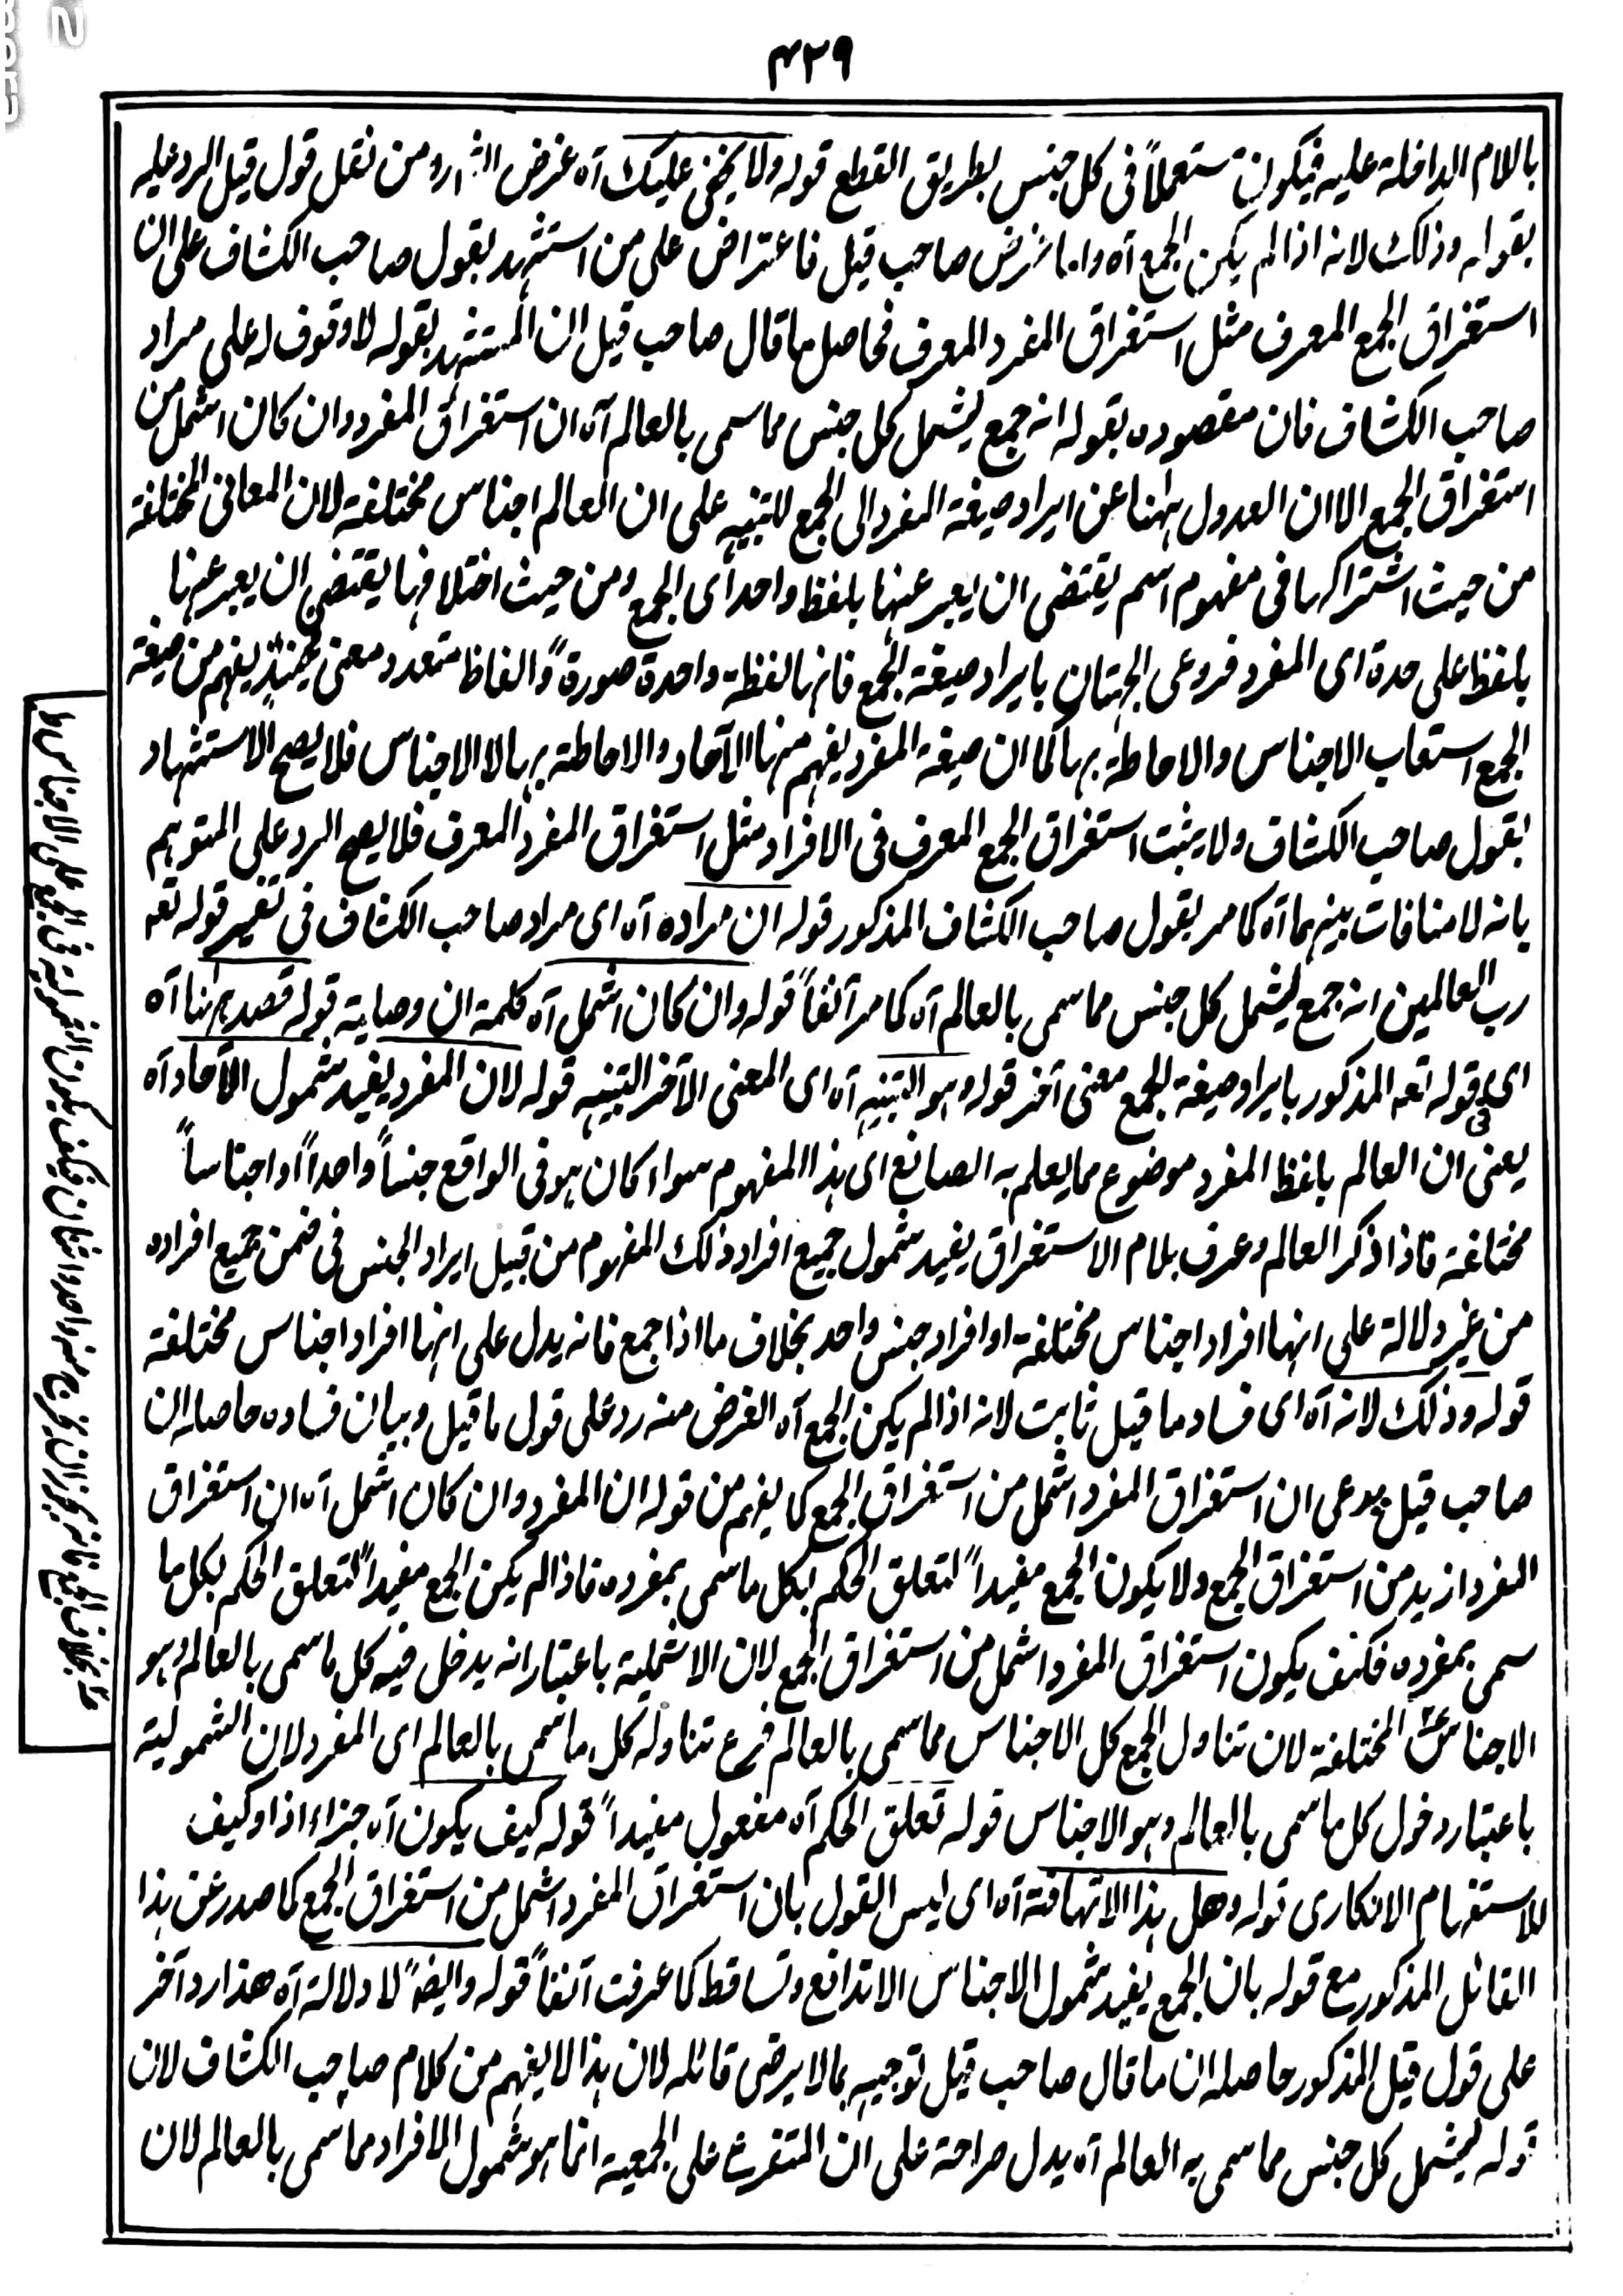 ۴۳۹
باللام الداخلة عليه فيكون مستعملاً فى كل جنس بطريق القطع قوله ولا يخفى عليك آه غرض الشارد من نقل قول قيل الرد عليه
بقوله وذلك لانه اذا لم يكن الجمع آه واما غرض صاحب قيل فاعتراض على من استشهد بقول صاحب الكشاف على ان
استغراق الجمع المعرف مثل استغراق المفرد المعرف فحاصل ما قال صاحب قيل ان المستشهد بقوله لا وقوف له على مراد
صاحب الكشاف فان مقصوده بقوله انه جمع ليشمل كل جنس مما سمى بالعالم آه ان استغراق المفرد وان كان اشمل من
استغراق الجمع الا ان العدول ههنا عن ايراد صيغة المفرد الى الجمع للتنبيه على ان العالم اجناس مختلفة لان المعانى المختلفة
من حيث اشتراكها فى مفهوم اسم يقتضى ان يعبر عنها بلفظ واحد اى الجمع ومن حيث اختلافها يقتضى ان يعبر عنها
بلفظ على حدة اى المفرد فروعى الجهتان بايراد صيغة الجمع فانها لفظة واحدة صورةً والفاظ متعدد معنى فحينئذ يفهم من صيغة
الجمع استيعاب الاجناس والاحاطة بها كما ان صيغة المفرد يفهم منها الآحاد والاحاطة بها لا الاجناس فلا يصح الاستشهاد
بقول صاحب الكشاف ولا يثبت استغراق الجمع المعرف فى الافراد مثل استغراق المفرد المعرف فلا يصح الرد على المتوهم
بانه لا منافات بينهما آه كما مر بقول صاحب الكشاف المذكور قوله ان مراده آه اى مراد صاحب الكشاف فى تفسير قوله تعه
رب العالمين انه جمع ليشمل كل جنس مما سمى بالعالم آه كما مر آنفاً قوله وان كان اشمل آه كلمة ان وصلية قوله قصد ههنا آه
اى فى قوله تعه المذكور بايراد صيغة الجمع معنى آخر قوله وهو التنبيه آه اى المعنى الآخر التنبيه قوله لان المفرد يفيد شمول الآحاد آه
يعنى ان العالم بلفظ المفرد موضوع مما يعلم به الصانع اى هذا المفهوم سواء كان هو فى الواقع جنساً واحداً او اجناساً
مختلفة فاذا ذكر العالم وعرف بلام الاستغراق يفيد شمول جميع افراد ذلك المفهوم من قبيل ايراد الجنس فى ضمن جميع افراده
من غير دلالة على انها افراد اجناس مختلفة او افراد جنس واحد بخلاف ما اذا جمع فانه يدل على انها افراد اجناس مختلفة
قوله وذلك لانه آه اى فساد ما قيل ثابت لانه اذا لم يكن الجمع آه الغرض منه رد على قول ما قيل وبيان فساده حاصله ان
صاحب قيل يدعى ان استغراق المفرد اشمل من استغراق الجمع كما يفهم من قوله ان المفرد وان كان اشمل آه ان استغراق
المفرد ازيد من استغراق الجمع ولا يكون الجمع مفيداً لتعلق الحكم بكل ما سمى بمفرده فاذا لم يكن الجمع مفيداً لتعلق الحكم بكل ما
سمى بمفرده فكيف يكون استغراق المفرد اشمل من استغراق الجمع لان الاشملية باعتبار انه يدخل فيه كل ما سمى بالعالم وهو
الاجناس المختلفة لان تناول الجمع كل الاجناس مما سمى بالعالم فرع تناوله كل ما سمى بالعالم اى المفرد لان الشمولية
باعتبار دخول كل ما سمى بالعالم وهو الاجناس قوله تعلق الحكم آه مفعول مفيداً قوله كيف يكون آه جزاء اذا وكيف
للاستفهام الانكارى قوله وهل هذا الا تهافته آه اى ليس القول بان استغراق المفرد اشمل من استغراق الجمع كما صدر عن هذا
القائل المذكور مع قوله بان الجمع يفيد شمول الاجناس الا تدافع وتساقط كما عرفت آنفاً قوله وايضاً لا دلالة آه هذا رد آخر
على قول قيل المذكور حاصله ان ما قال صاحب قيل توجيه بما لا يرضى قائله لان هذا لا يفهم من كلام صاحب الكشاف لان
قوله ليشمل كل جنس مما سمى به العالم آه يدل صراحة على ان المتفرع على الجمعية انما هو شمول الافراد مما سمى بالعالم لان